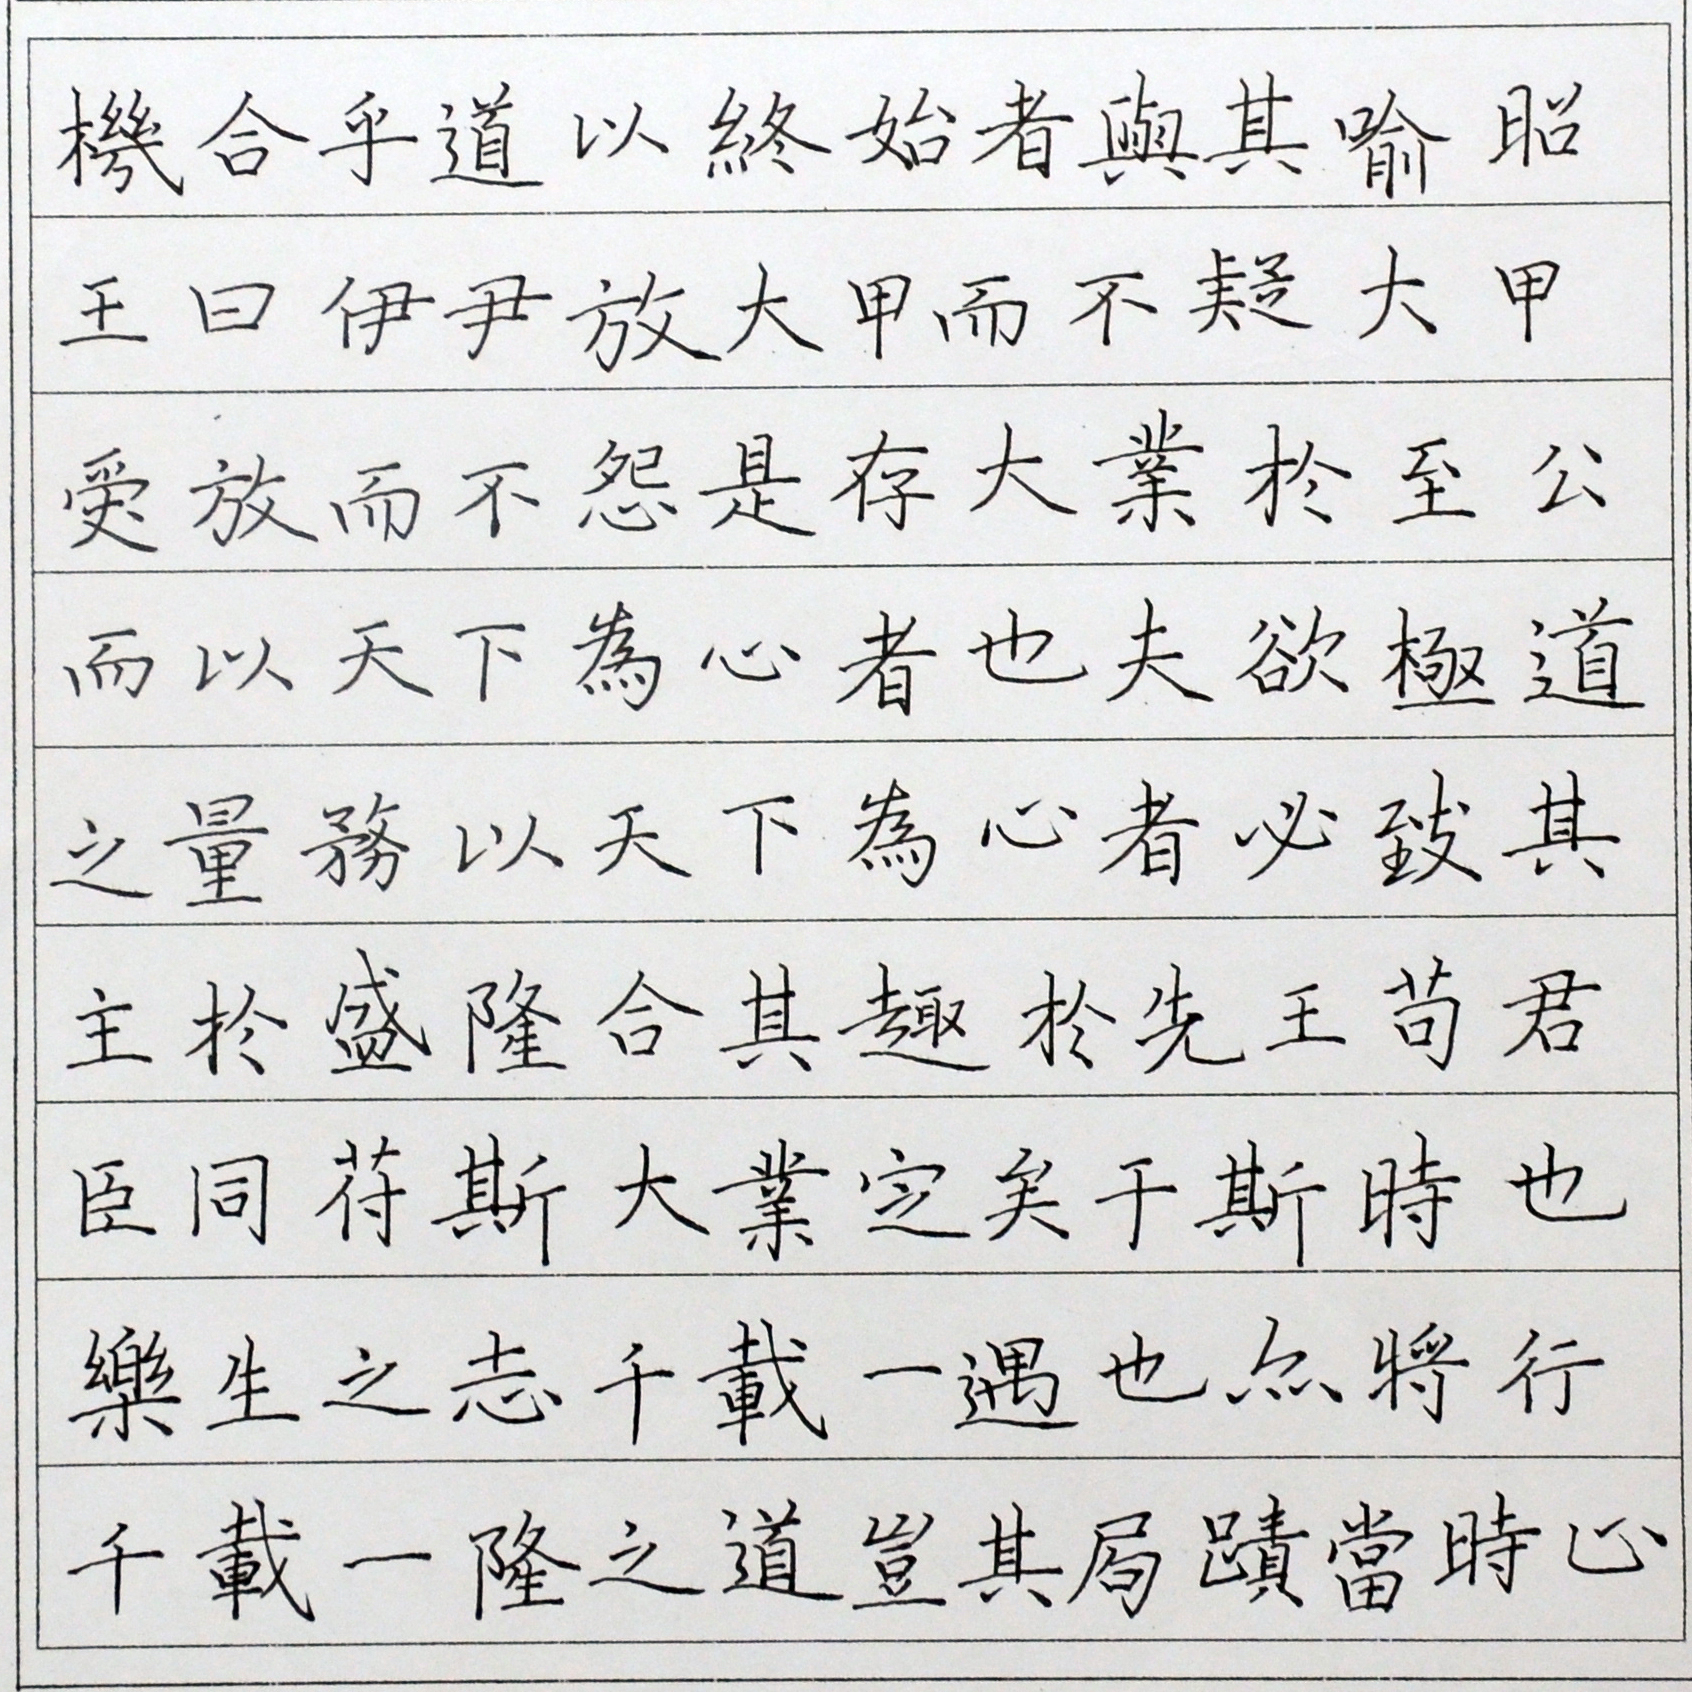 機合乎道以終始者與其喻昭
王曰伊尹放大甲而不疑大甲
受放而不怨是存大業於至公
而以天下為心者也夫欲極道
之量務以天下為心者必致其
主於盛隆合其趣於先王苟君
臣同苻斯大業定矣于斯時也
樂生之志千載一遇也亦將行
千載一隆之道豈其局蹟當時心